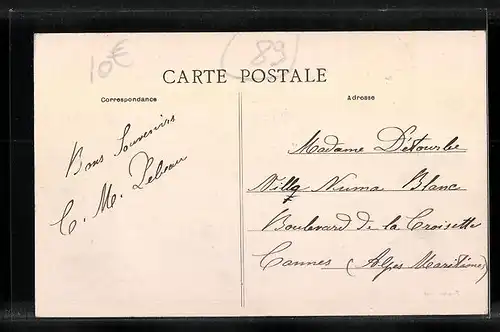 10€
(89)
CARTE POSTALE
Correspondance
Adresse
Bons Souvenirs
C. M. Lebeau
Madame Détourbe
Villa Numa Blanc
Boulevard de la Croisette
Cannes (Alpes Maritimes)